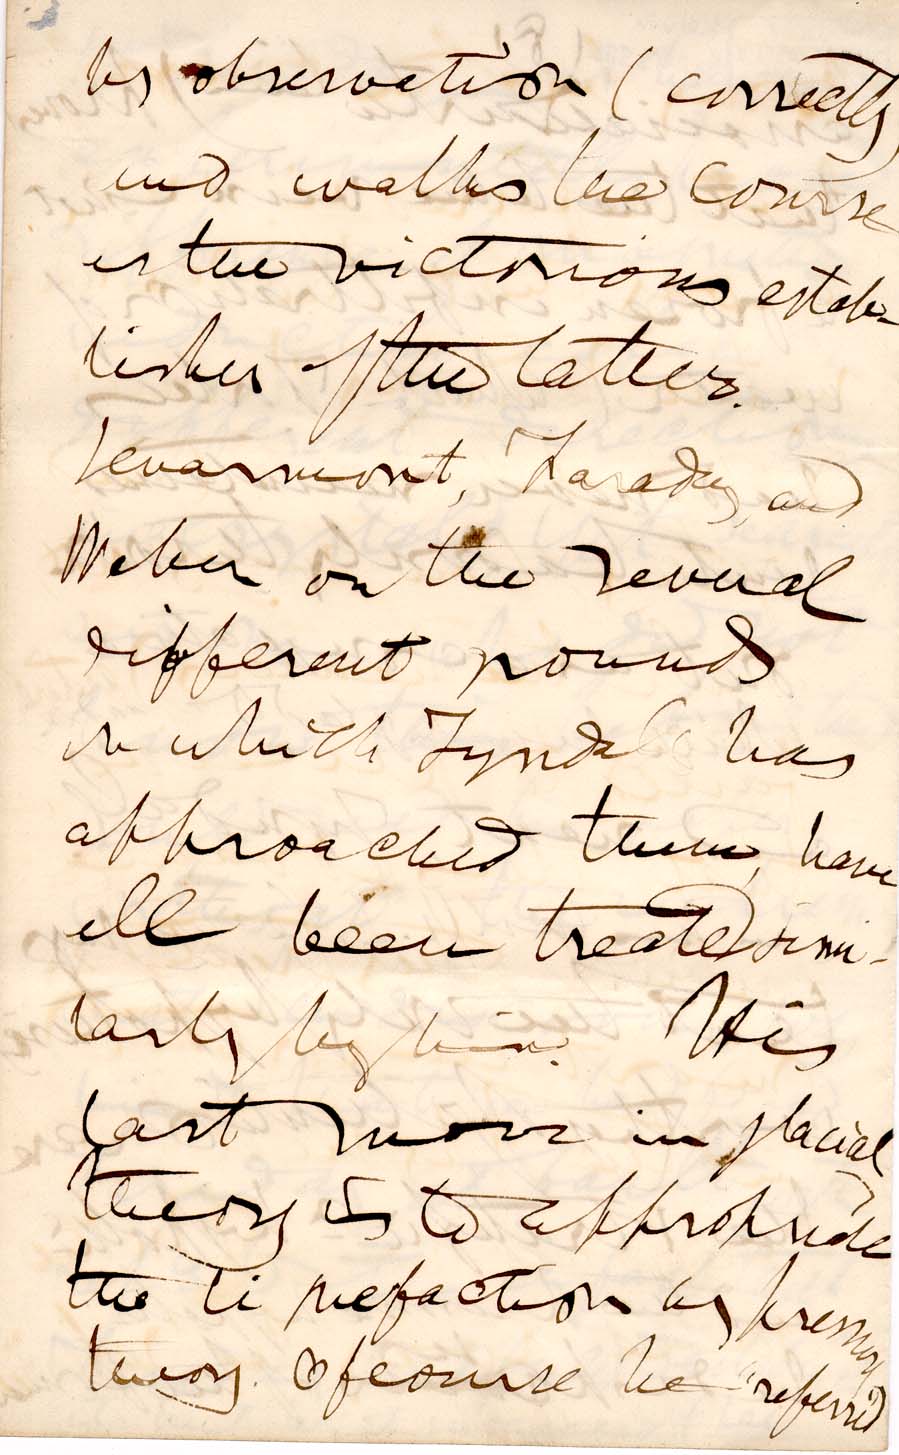 by observation (correctly)
and walks the course
as the victorious estab-
lisher of the latter.
Senarmont, Faraday, and
Weber on the several
different grounds
in which Tyndall has
approached them, have
all been treated simi-
larly by him. His
last move in glacial
theory is to appropriate
the liquefaction by pressure
theory. Of course he "referred